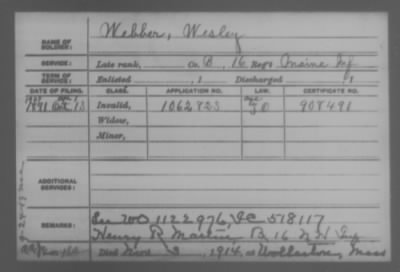 NAME OF SOLDIER: Webber, Wesley
SERVICE: Late rank, Co. B, 16 Reg't Maine Inf
TERM OF SERVICE: Enlisted , 1 Discharged , 1
DATE OF FILING. CLASS. APPLICATION NO. LAW. CERTIFICATE NO.
1891 Oct. 13 Invalid, 1062823 908491
Widow,
Minor,
ADDITIONAL SERVICES:
REMARKS: WO 1122976, IC 518117
Henry R Martin B 16 N H Inf
Died 1914, at Wollaston, Mass